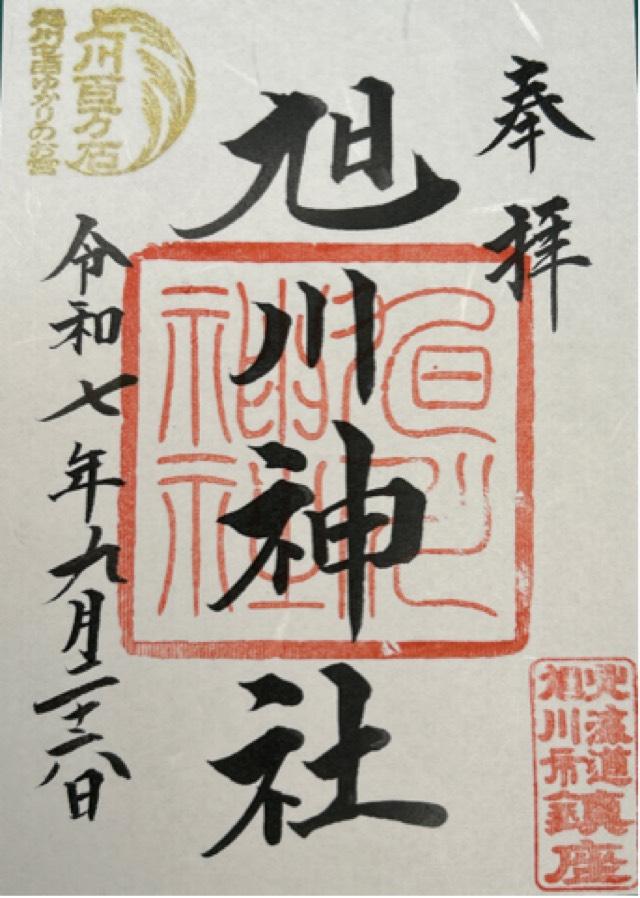 奉拝
旭川神社
旭川
神社
令和七年九月二十六日
上川百万石
旭川屯田ゆかりのお宮
北海道
旭川市
鎮座